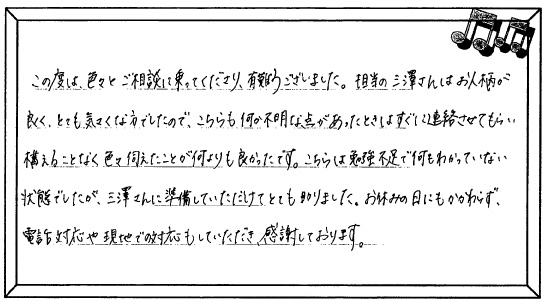 この度は、色々とご相談に乗ってくださり、有難うございました。担当の三澤さんはお人柄が
良く、とても気さくな方でしたので、こちらも何か不明な点があったときはすぐに連絡させてもらい
構えることなく色々伺えたことが何よりも良かったです。こちらは勉強不足で何もわかっていない
状態でしたが、三澤さんに準備していただけてとても助かりました。お休みの日にもかかわらず、
電話対応や現地での対応もしていただき、感謝しております。